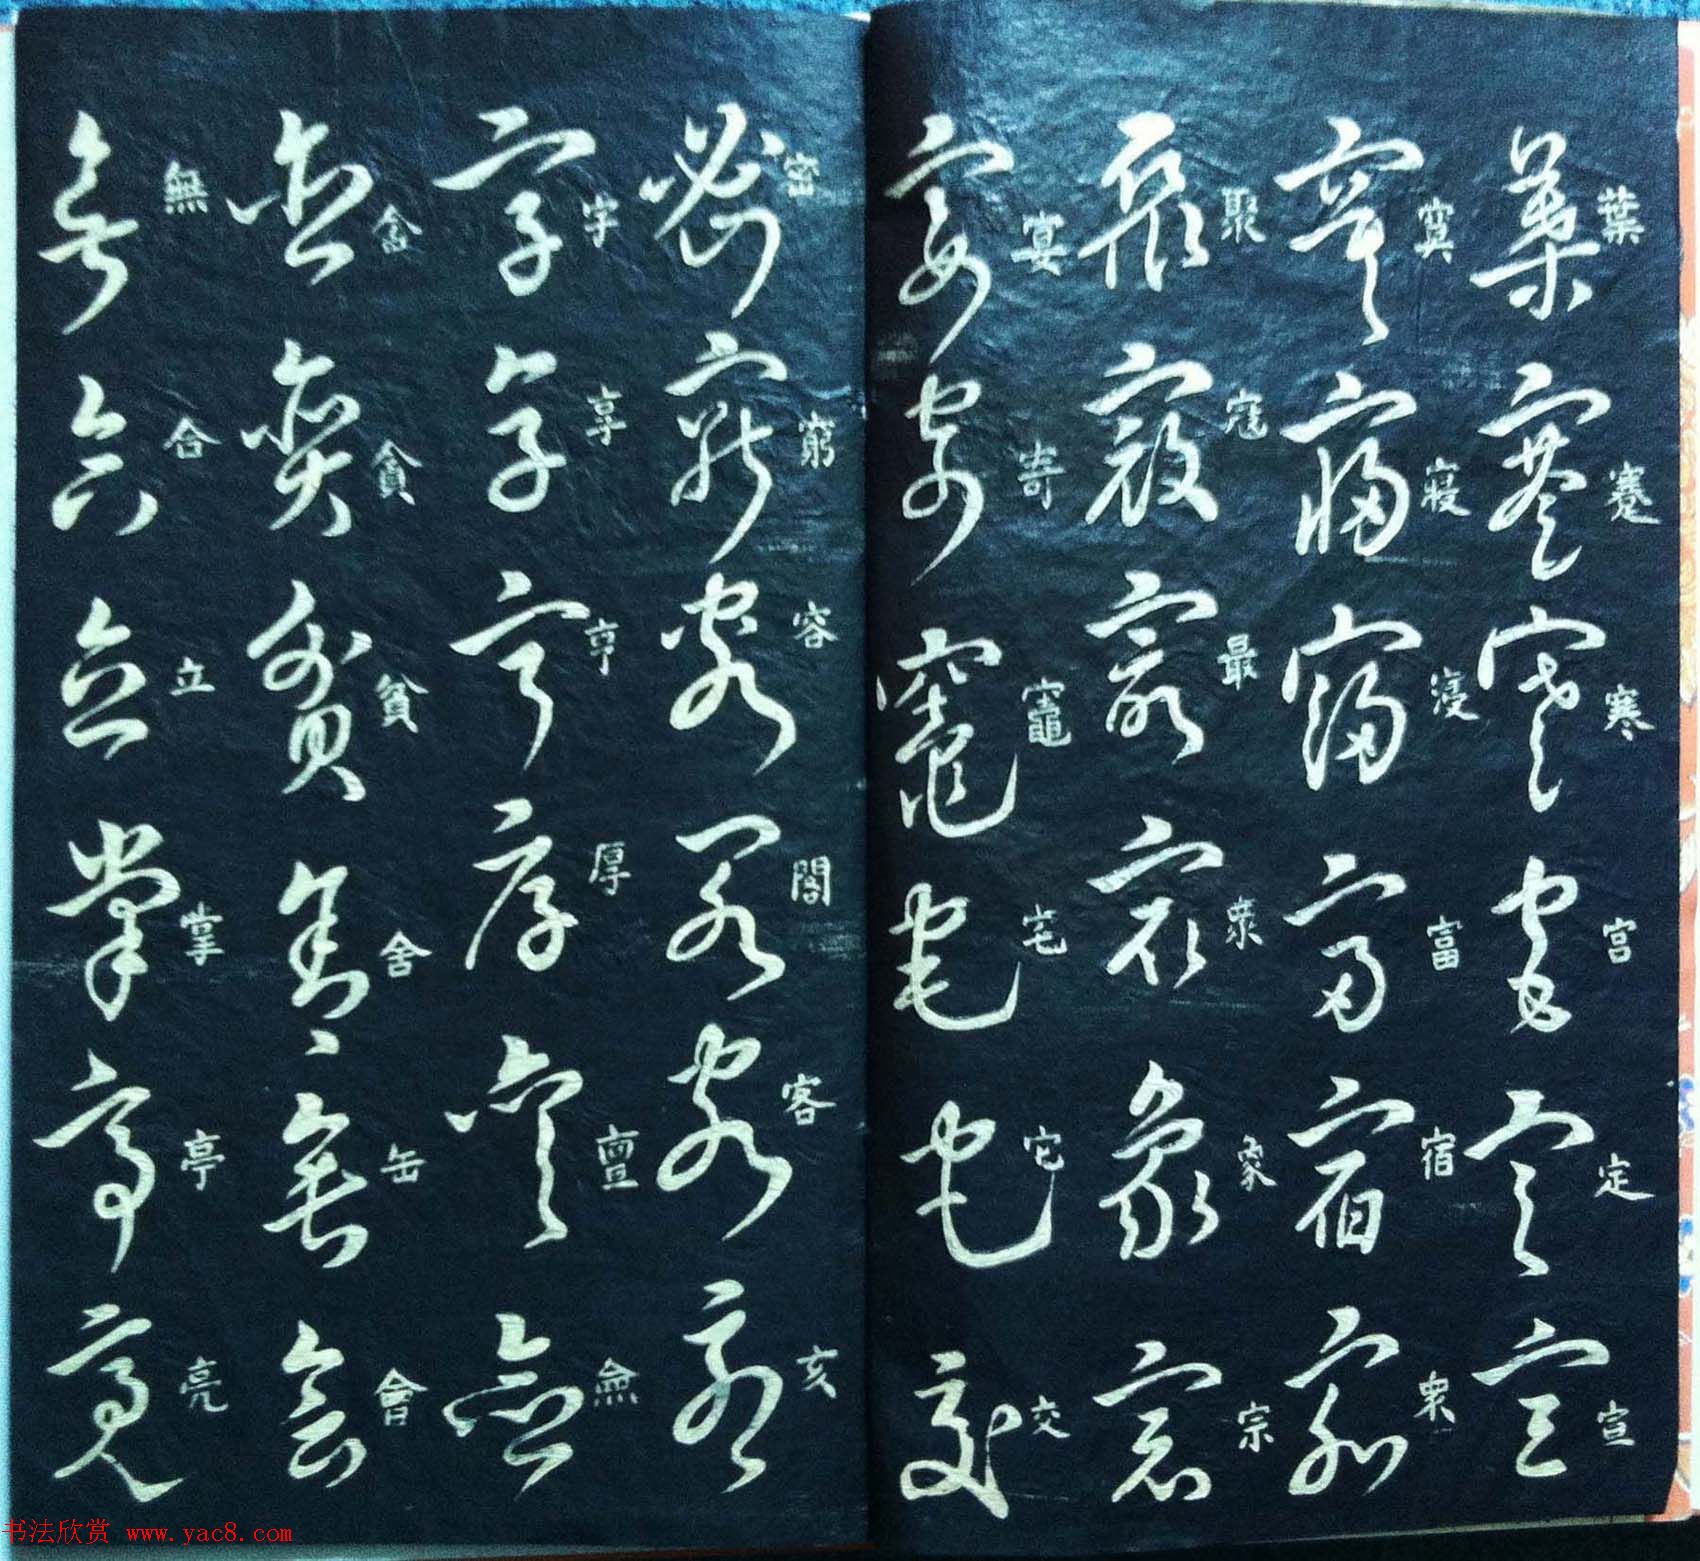 葉蹇寒宮定宣
寞寢寖富宿
聚寇最衆宗
宴寄竈宅它交
密窮容閣客亥
字享亨厚亶僉
貪貧舍缶會
無合立掌亭亮
书法欣赏 www.yac8.com